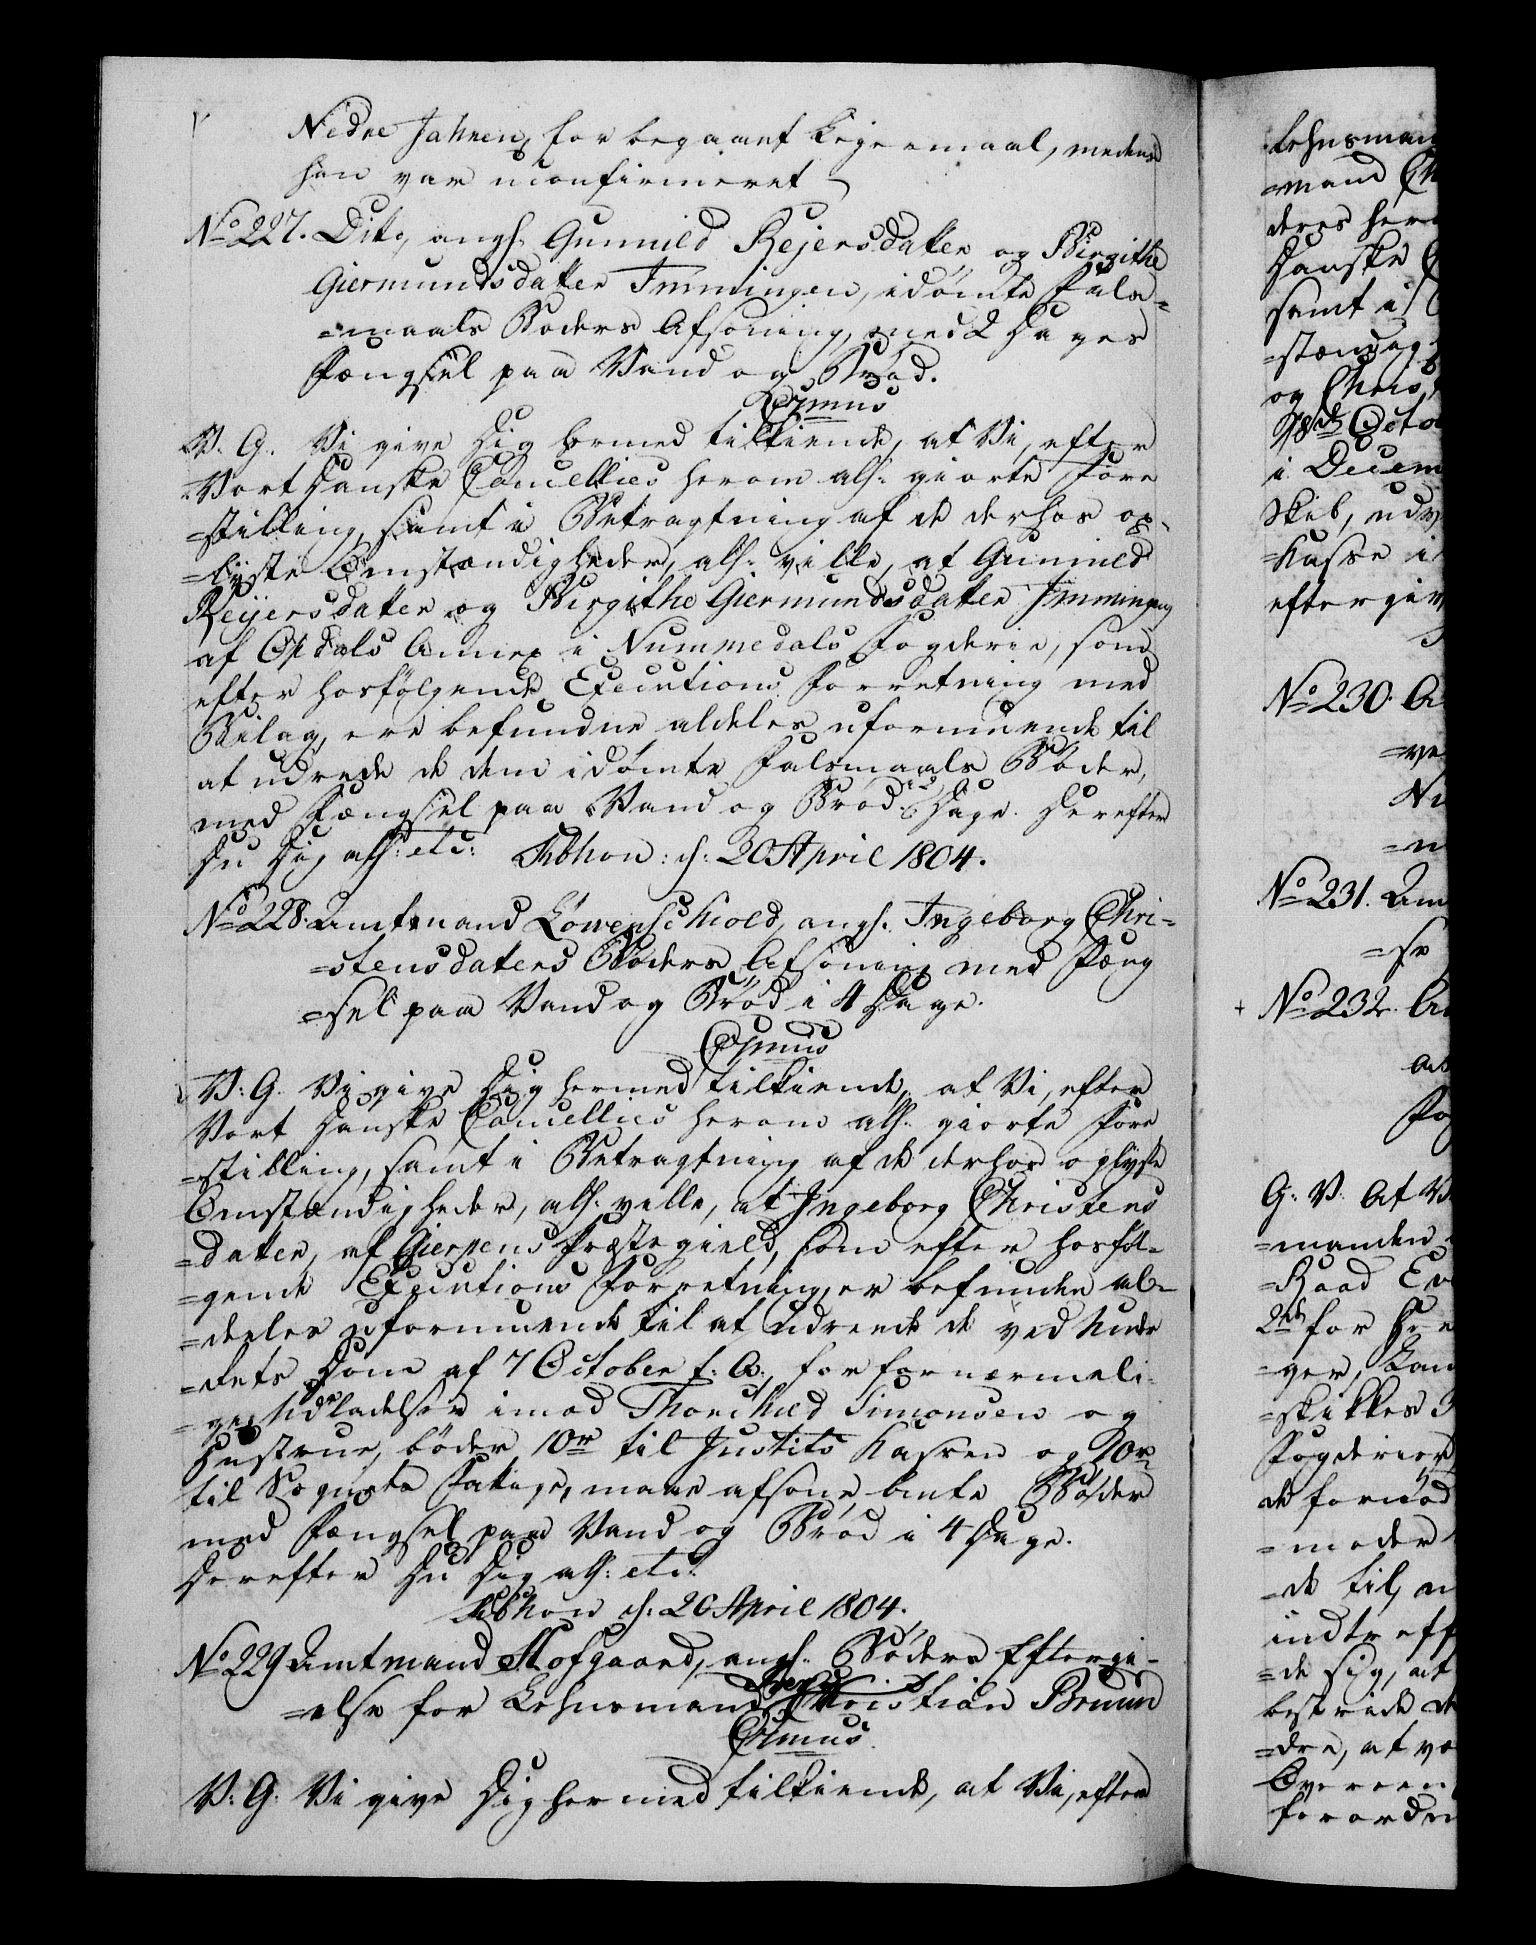 Nedre Jahren, for begaaet Leiermaal, medens
han var uconfirmeret
No 227. Dito, angl. Gunnild Rejersdatter og Birgithe
Giermundsdatter Immingen, idømte Fals-
=maals Bøders Afsoning, med 2 Dages
Fængsel paa Vand og Brød.
C7mus
V. G. Vi give Dig hermed tilkiende, at Vi, efter
Vort Danske Cancellies herom alh. giorte Fore
=stilling, samt i Betragtning af de derhos op-
=lyste Omstændigheder, alh. ville, at Gunnild
Reijersdatter og Birgithe Giermundsdatter Immingen
af Opdals Annex i Nummedals Fogderie, som
efter hosfølgende Executions Forretning med
Bilag, ere befundne aldeles uformuende til
at udrede de dem idømte Falsmaals Bøder,
med Fængsel paa Vand og Brød i 2 Dage. Derefter
Du Dig alh: etc: Kbhvn: d: 20 April 1804.
No 228. Amtmand Løvenschiold, angl. Ingeborg Chri-
=stensdatters Bøders Afsoning med Fæng
=sel paa Vand og Brød i 4 Dage.
C7mus
V: G. Vi give Dig hermed tilkiende, at Vi, efter
Vort Danske Cancellies herom alh. giorte Fore
=stilling, samt i Betragtning af de derhos oplyste
Omstændigheder, alh. ville, at Ingeborg Christens
=datter, af Gierpens Præstegield, som efter hosføl-
=gende Executions Forretning, er befunden al-
=deeles uformuende til at udreede de ved Under
=Rets Dom af 7 October f: A:, for fornærmeli-
=ge Udladelser imod Thorchild Simonsen og
Hustrue, bøder 10 rd til Justits Kassen og 10 rd
til Sognets Fattige, maae afsone bente Bøder
med Fængsel paa Vand og Brød i 4 Dage.
Derefter Du Dig alh: etc:
Kbhvn d: 20 April 1804.
No 229 Amtmand Hofgaard, angl. Bøders Eftergi-
=velse for Lehnsmand Christian Bruun
C7mus.
V: G: Vi give Dig hermed tilkiende, at Vi, efter
Lehnsman
=mand
deres her
Danske
samt i
=stændig
og Chris
i Decem
Skib, udv
=Kasse i
eftergiv
No 230. A
No 231. Am
No 232.
G: V. At V
=manden
=Raad
for
=ger,
=skikkes
Fogderier
de fornød
=moder
=de til,
indtreff
=de sig, at
bestride
=dre, at
Overeen
forordn